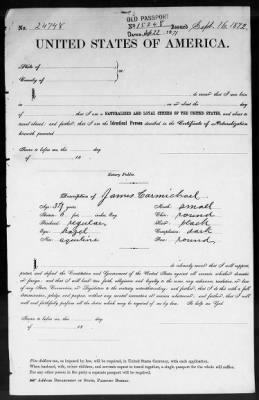 OLD PASSPORT
No. 24748 No 15248 Issued Sept. 16, 1872
Dated 22 1871
UNITED STATES OF AMERICA.
State of
County of
I,
in or about the day
of that I am a NATURALIZED AND LOYAL CITIZEN OF THE UNITED STATES, and about to
travel abroad; and further, that I am the Identical Person described in the Certificate of Naturalization
herewith presented
Sworn to before me, this day
of 18
Notary Public.
Description of James Carmichael
Age: 39 years Mouth: small
Stature: 5 feet inches, Eng. Chin: round
Forehead: regular Hair: black
Eyes: hazel Complexion: dark
Nose: aquiline Face: round
I, do solemnly swear that I will support,
protect, and defend the Constitution and Government of the United States against all enemies, whether domestic
or foreign; and that I will bear true faith, allegiance, and loyalty to the same, any ordinance, resolution, or law
of any State, Convention, or Legislature to the contrary notwithstanding; and further, that I do this with a full
determination, pledge, and purpose, without any mental reservation or evasion whatsoever; and further, that I will
well and faithfully perform all the duties which may be required of me by law. So help me God.
Sworn to before me, this day
of 18
Five dollars tax, as imposed by law, will be required, in United States Currency, with each application.
When husband, wife, minor children, and servants expect to travel together, a single passport for the whole will suffice.
For any other person in the party a separate passport will be required.
Address DEPARTMENT OF STATE, PASSPORT BUREAU.